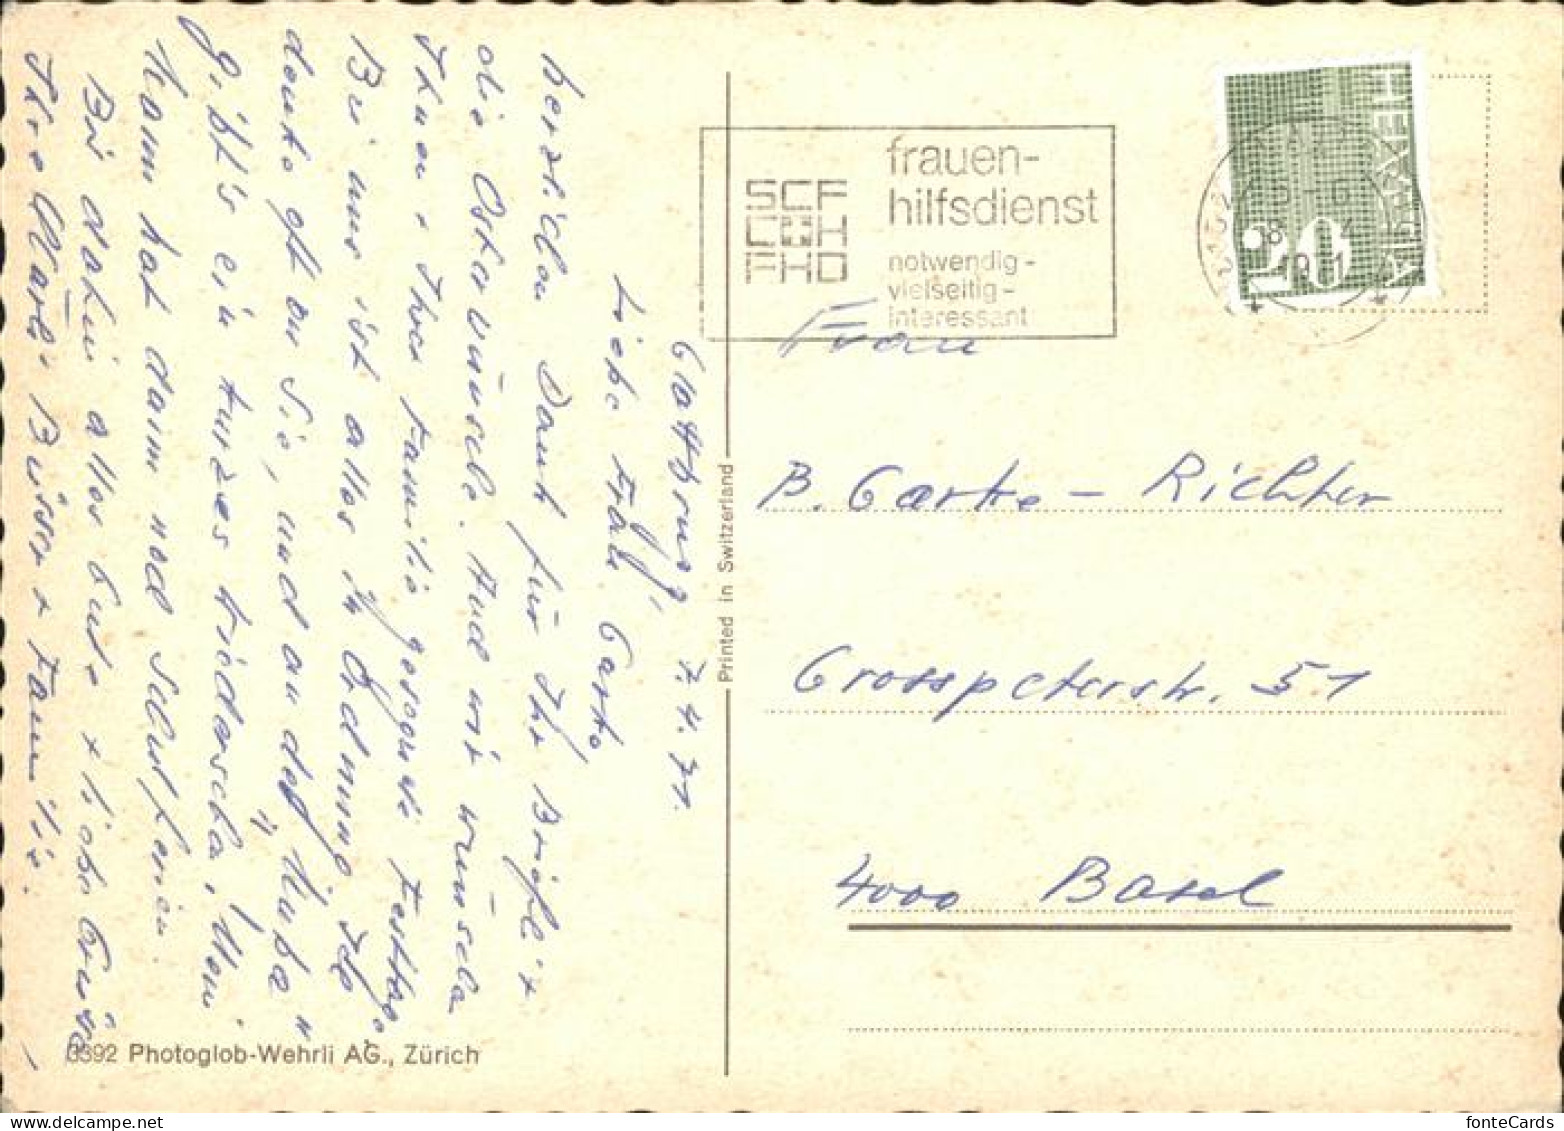 Glattbrugg, 7.4.71.
Liebe Frau Garte,
herzlichen Dank für Ihr Briefli +
die Osterwünsche. Auch wir wünschen
Ihnen + Ihrer Familie gesegnete Festtage.
Bei uns ist alles in Ordnung. Ich
denke oft an Sie, und an das "Küsche"
gibt's ein kurzes Wiedersehen, Mein
Mann hat dann noch Schulferien.
Bis dahin alles Gute + liebe Grüsse
Ihre Märli Büsser + Familie.
3392 Photoglob-Wehrli AG., Zürich
Printed in Switzerland
SCF
CH
FHD
frauen-
hilfsdienst
notwendig-
vielseitig-
interessant
HELVETIA
50
Frau
B. Garke-Richter
Grosspeterstr. 51
4000 Basel
fonteCards